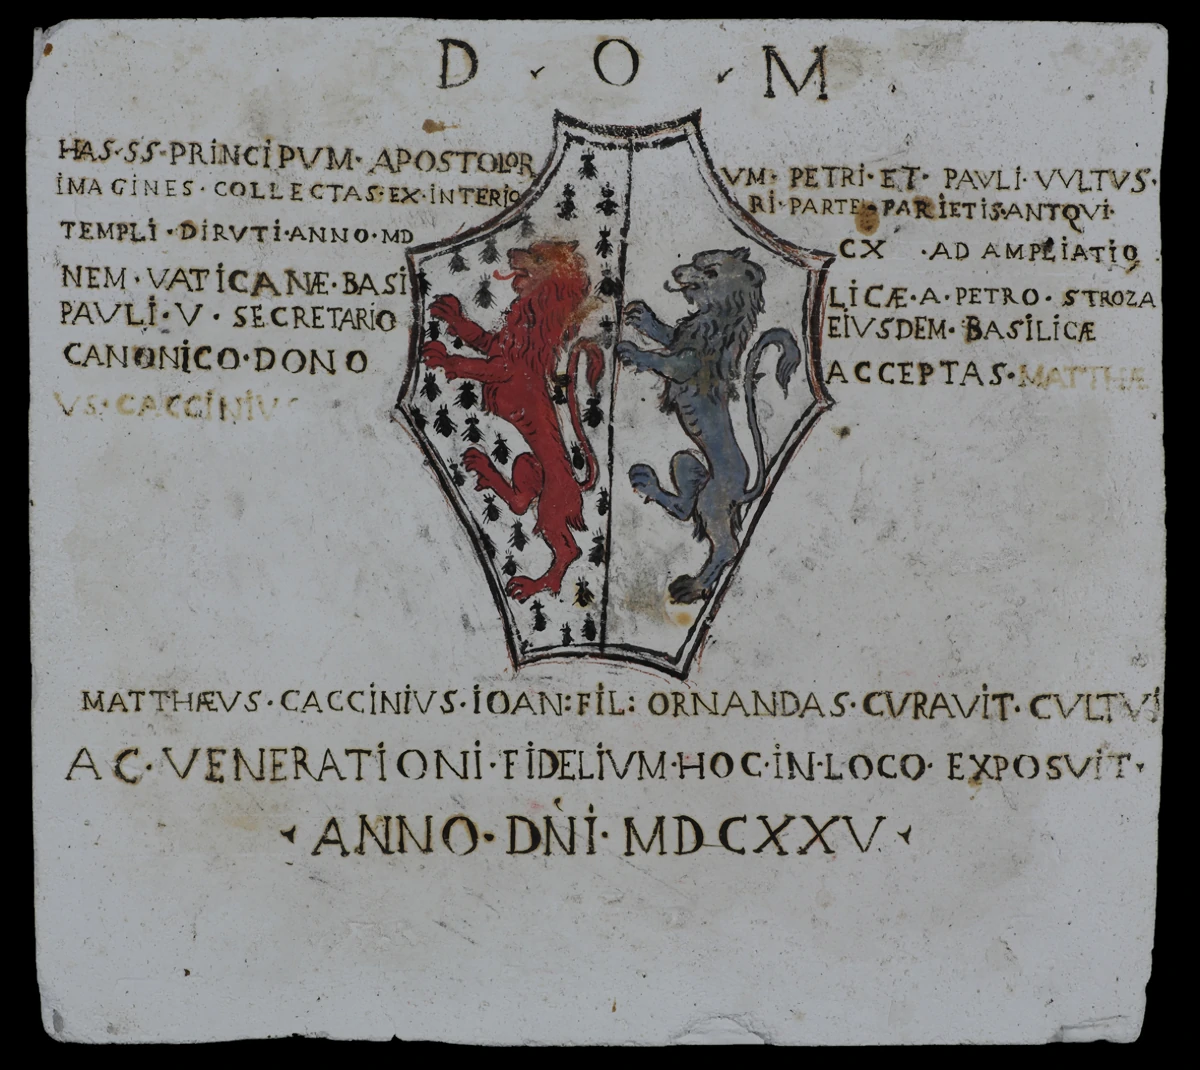 D · O · M
HAS·SS·PRINCIPVM·APOSTOLOR VM· PETRI·ET· PAVLI·VVLTVS·
IMAGINES·COLLECTAS·EX·INTERIO RI·PARTE·PARIETIS·ANTQVI·
TEMPLI·DIRVTI·ANNO·MD CX ·AD AMPLIATIO
NEM·VATICANÆ·BASI LICÆ·A·PETRO·STROZA
PAVLI·V·SECRETARIO EIVSDEM·BASILICÆ
CANONICO·DONO ACCEPTAS·MATTHÆ
VS·CACCINIVS
MATTHÆVS·CACCINIVS·IOAN:FIL: ORNANDAS·CVRAVIT·CVLTVI
AC·VENERATIONI·FIDELIVM·HOC·IN·LOCO·EXPOSVIT·
·ANNO·DNI·MDCXXV·